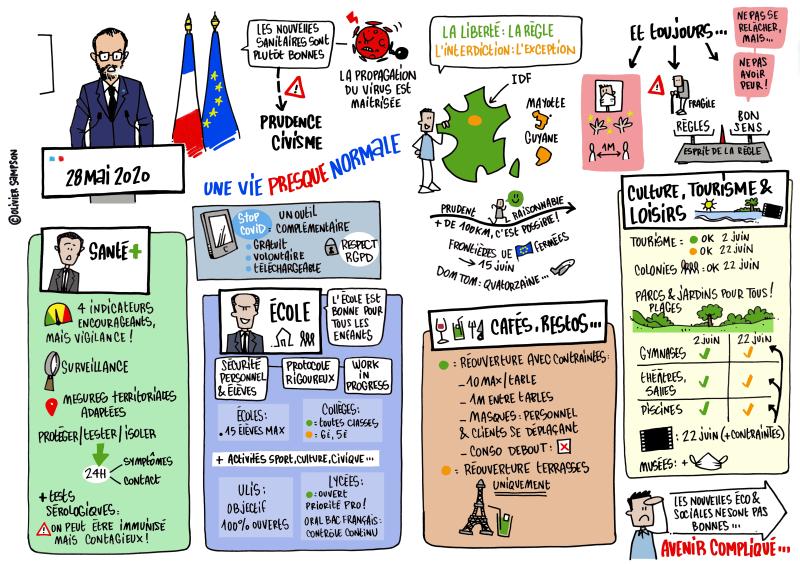 ©OLIVIER SAMPSON
28 MAI 2020
LES NOUVELLES
SANITAIRES SONT
PLUTÔT BONNES
PRUDENCE
CIVISME
LA PROPAGATION
DU VIRUS EST
MAITRISÉE
UNE VIE PRESQUE NORMALE
LA LIBERTÉ : LA RÈGLE
L'INTERDICTION : L'EXCEPTION
IDF
MAYOTTE
GUYANE
PRUDENT
RAISONNABLE
+ DE 100KM, C'EST POSSIBLE !
FRONTIÈRES DE
FERMÉES
→ 15 JUIN
DOM TOM : QUATORZAINE...
ET TOUJOURS...
NE PAS SE
RELÂCHER,
MAIS...
NE PAS
AVOIR
PEUR !
1M
FRAGILE
RÈGLES
BON
SENS
ESPRIT DE LA RÈGLE
SANTÉ+
4 INDICATEURS
ENCOURAGEANTS,
MAIS VIGILANCE !
SURVEILLANCE
MESURES TERRITORIALES
ADAPTÉES
PROTÉGER/TESTER/ISOLER
24H
SYMPTÔMES
CONTACT
+ TESTS
SÉROLOGIQUES :
ON PEUT ÊTRE IMMUNISÉ
MAIS CONTAGIEUX !
STOP
COVID
: UN OUTIL
COMPLÉMENTAIRE
• GRATUIT
• VOLONTAIRE
• TÉLÉCHARGEABLE
RESPECT
RGPD
ÉCOLE
L'ÉCOLE EST
BONNE POUR
TOUS LES
ENFANTS
SÉCURITÉ
PERSONNEL
& ÉLÈVES
PROTOCOLE
RIGOUREUX
WORK
IN
PROGRESS
ÉCOLES :
• 15 ÉLÈVES MAX
COLLÈGES :
= TOUTES CLASSES
= 6È, 5È
+ ACTIVITÉS SPORT, CULTURE, CIVIQUE...
ULIS :
OBJECTIF
100% OUVERTS
LYCÉES :
= OUVERT
PRIORITÉ PRO !
ORAL BAC FRANÇAIS :
CONTRÔLE CONTINU
CAFÉS, RESTOS...
= RÉOUVERTURE AVEC CONTRAINTES :
– 10 MAX/TABLE
– 1M ENTRE TABLES
– MASQUES : PERSONNEL
& CLIENTS SE DÉPLAÇANT
– CONSO DEBOUT :
= RÉOUVERTURE TERRASSES
UNIQUEMENT
CULTURE, TOURISME &
LOISIRS
TOURISME : = OK 2 JUIN
= OK 22 JUIN
COLONIES : OK 22 JUIN
PARCS & JARDINS POUR TOUS !
PLAGES
2 JUIN
22 JUIN
GYMNASES
THÉÂTRES,
SALLES
PISCINES
: 22 JUIN (+ CONTRAINTES)
MUSÉES : +
LES NOUVELLES ÉCO &
SOCIALES NE SONT PAS
BONNES...
AVENIR COMPLIQUÉ...